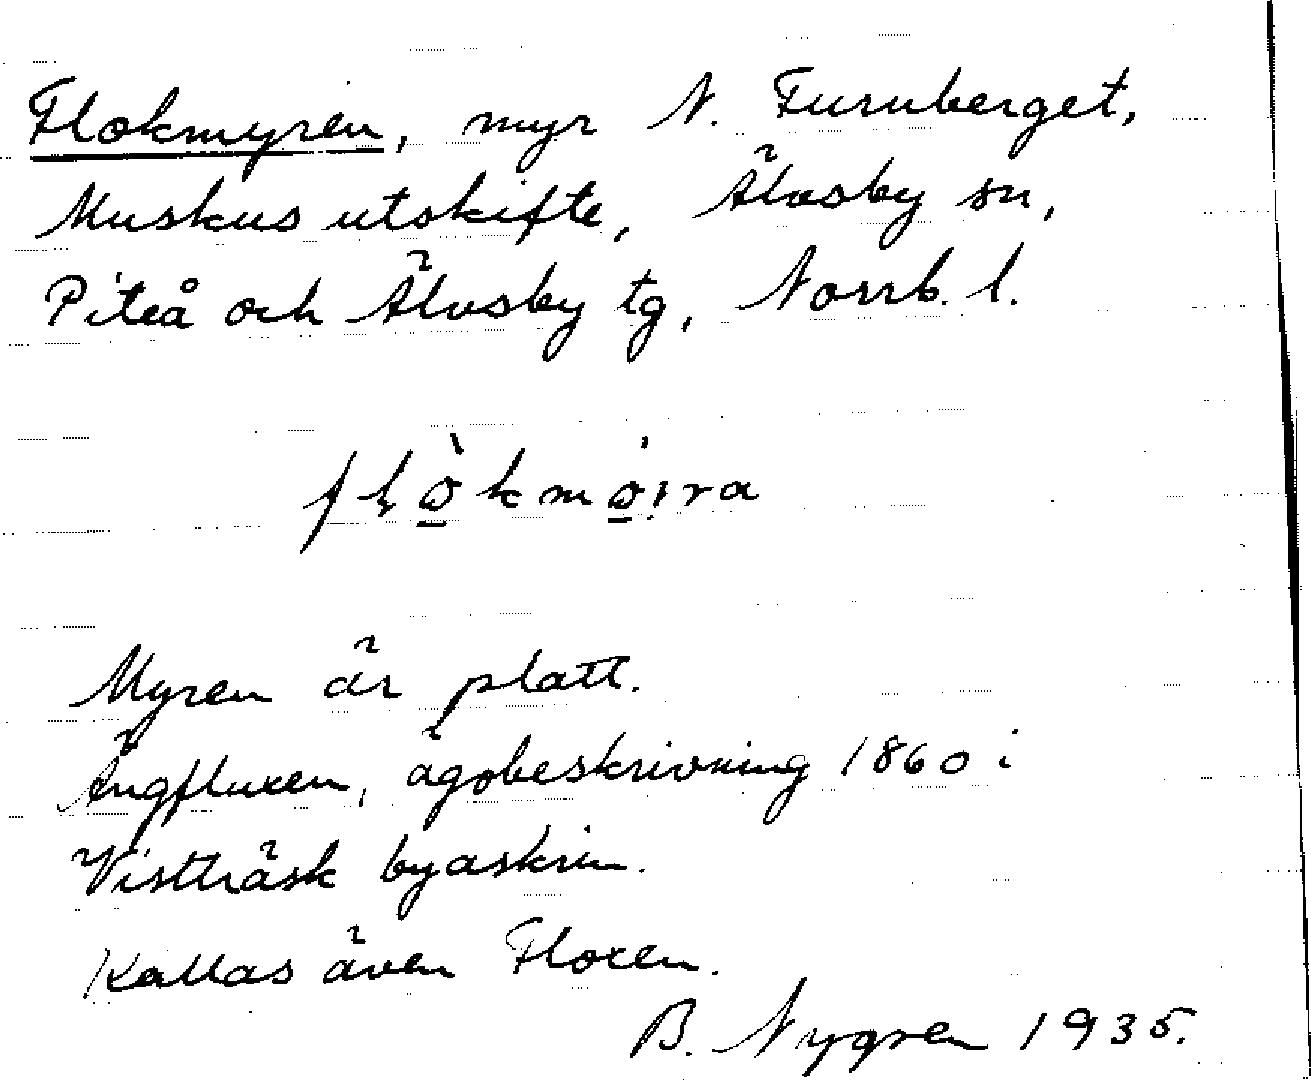 Flokmyren, myr N. Furuberget,
Muskus utskifte, Älvsby sn,
Piteå och Älvsby tg, Norrb. l.
Myren är platt.
Ängfluxen, ägobeskrivning 1860 i
Vistträsk byaskrin.
Kallas även Floxen.
B. Nygren 1935.